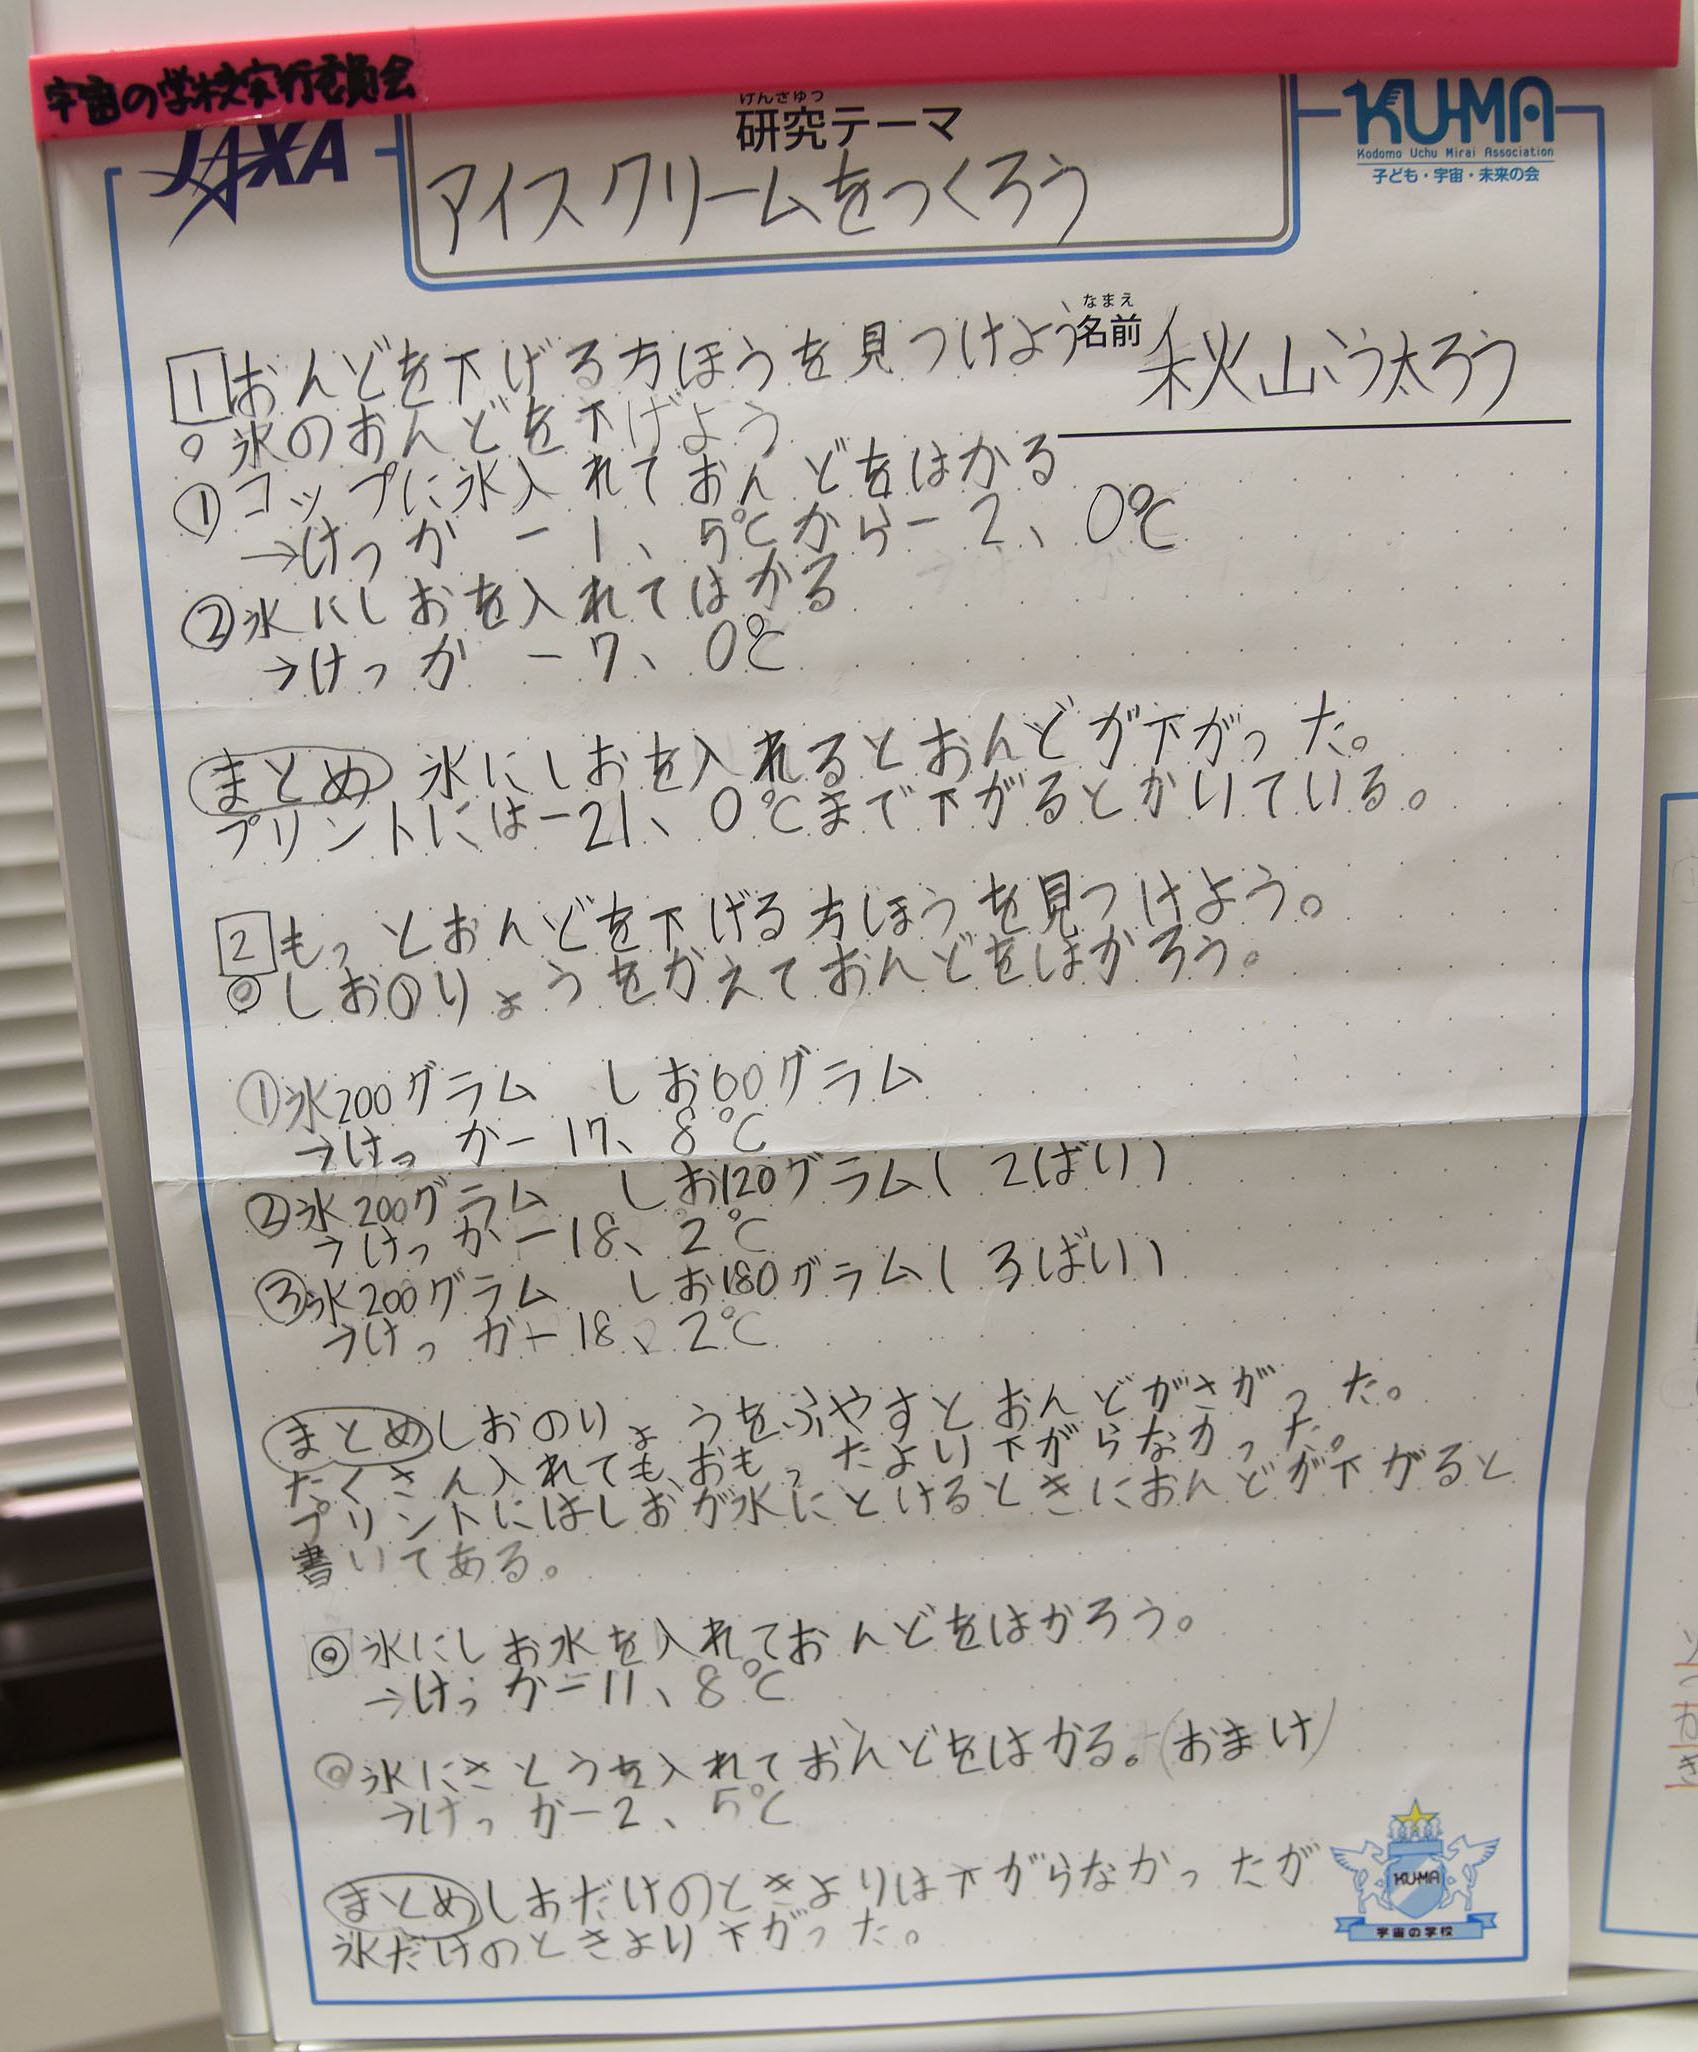 宇宙の学校実行委員会
JAXA
けんきゅう
研究テーマ
アイスクリームをつくろう
KU-MA
Kodomo Uchu Mirai Association
子ども・宇宙・未来の会
なまえ
名前
秋山こう太ろう
1 おんどを下げる方ほうを見つけよう
○氷のおんどを下げよう
①コップに氷入れておんどをはかる
→けっか -1、5℃から-2、0℃
②氷にしおを入れてはかる
→けっか -7、0℃
まとめ 氷にしおを入れるとおんどが下がった。
プリントには-21、0℃まで下がるとかいている。
2 もっとおんどを下げる方ほうを見つけよう。
◎しおのりょうをかえておんどをはかろう。
①氷200グラム しお60グラム
→けっか-17、8℃
②氷200グラム しお120グラム(2ばい)
→けっか-18、2℃
③氷200グラム しお180グラム(3ばい)
→けっか-18、2℃
まとめ しおのりょうをふやすとおんどがさがった。
たくさん入れても、おもったより下がらなかった。
プリントにはしおが氷にとけるときにおんどが下がると
書いてある。
◎氷にしお水を入れておんどをはかろう。
→けっか-11、8℃
◎氷にさとうを入れておんどをはかる。(おまけ)
→けっか-2、5℃
まとめ しおだけのときよりは下がらなかったが
氷だけのときより下がった。
KU-MA
宇宙の学校